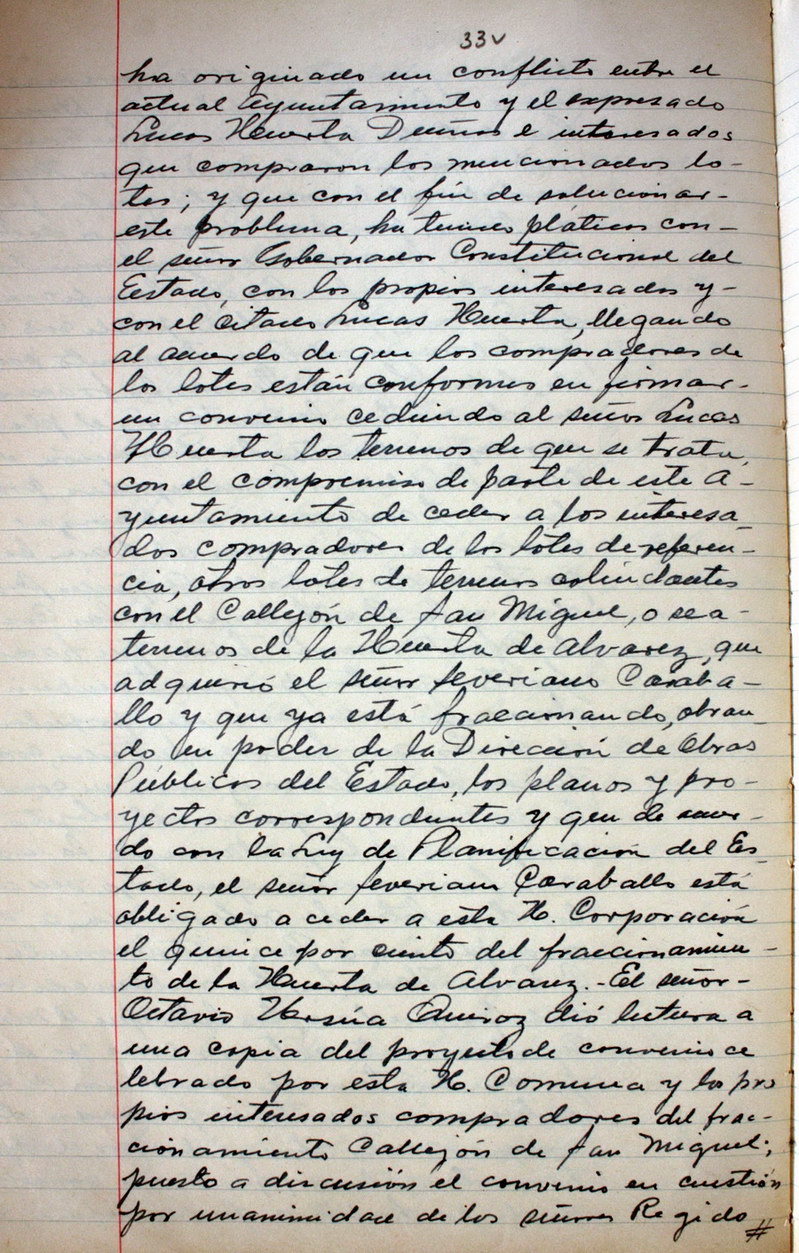 33v
ha originado un conflicto entre el
actual Ayuntamiento y el expresado
Lucas Huerta Dueñas e interesados
que compraron los mencionados lo-
tes; y que con el fin de solucionar-
este problema, ha tenido pláticas con-
el señor Gobernador Constitucional del
Estado, con los propios interesados y-
con el citado Lucas Huerta, llegando
al acuerdo de que los compradores de
los lotes están conformes en firmar-
un convenio cediendo al señor Lucas
Huerta los terrenos de que se trata,
con el compromiso de parte de este A-
yuntamiento de ceder a los interesa
dos compradores de los lotes de referen-
cia, otros lotes de terrenos colindantes
con el Callejón de San Miguel, o sea-
terrenos de la Huerta de Alvarez, que
adquirió el señor Severiano Caraba-
llo y que ya está fraccionando, obran-
do en poder de la Dirección de Obras
Públicas del Estado, los planos y pro-
yectos correspondientes y que de acuer-
do con la Ley de Planificación del Es-
tado, el señor Severiano Caraballo está
obligado a ceder a esta H. Corporación
el quince por ciento del fraccionamien-
to de la Huerta de Alvarez.-El señor-
Octavio Ursúa Quiroz dió lectura a
una copia del proyecto de convenio ce
lebrado por esta H. Comuna y los pro
pios interesados compradores del frac-
cionamiento Callejón de San Miguel;
puesto a discusión el convenio en cuestión
por unanimidad de los señores Regido #